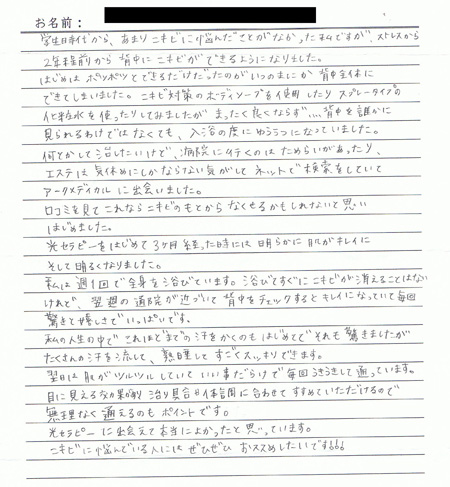 お名前：
学生時代から、あまりニキビに悩んだことがなかった私ですが、ストレスから
2年程前から背中にニキビができるようになりました。
はじめはポツポツとできるだけだったのがいつのまにか背中全体に
できてしまいました。ニキビ対策のボディソープを使用したりスプレータイプの
化粧水を使ったりしてみましたがまったく良くならず…背中を誰かに
見られるわけではなくても、入浴の度にゆううつになっていました。
何とかして治したいけど、病院に行くのはためらいがあったり、
エステは気休めにしかならない気がしてネットで検索をしていて
アークメディカルに出会いました。
口コミを見てこれならニキビのもとからなくせるかもしれないと思い
はじめました。
光セラピーをはじめて3ヶ月経った時には明らかに肌がキレイに
そして明るくなりました。
私は週1回で全身を浴びています。浴びてすぐにニキビが消えることはない
けれど、翌週の通院が近づいて背中をチェックするとキレイになっていて毎回
驚きと嬉しさでいっぱいです。
私の人生の中でこれほどまでの汗をかくのもはじめてでそれも驚きましたが
たくさんの汗を流して、熟睡してすごくスッキリできます。
翌日は肌がツルツルしていていい事だらけで毎回うきうきして通っています。
目に見える効果があり治り具合や体調に合わせてすすめていただけるので
無理なく通えるのもポイントです。
光セラピーに出会えて本当によかったと思っています。
ニキビに悩んでいる人にはぜひぜひおススメしたいです